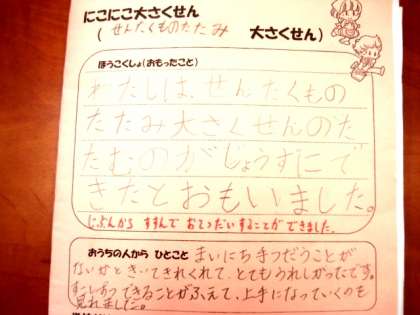 にこにこ大さくせん
(せんたくものたたみ 大さくせん)
ほうこくしょ(おもったこと)
わたしは、せんたくもの
たたみ大さくせんのた
たむのがじょうずにで
きたとおもいました。
じぶんから すすんで おてつだいすることが できました。
おうちの人から ひとこと
まいにち手つだうことが
ないかと きいてきれくれて、とてもうれしかったです。
すこしずつできることがふえて、上手になっていくのを
見れました。